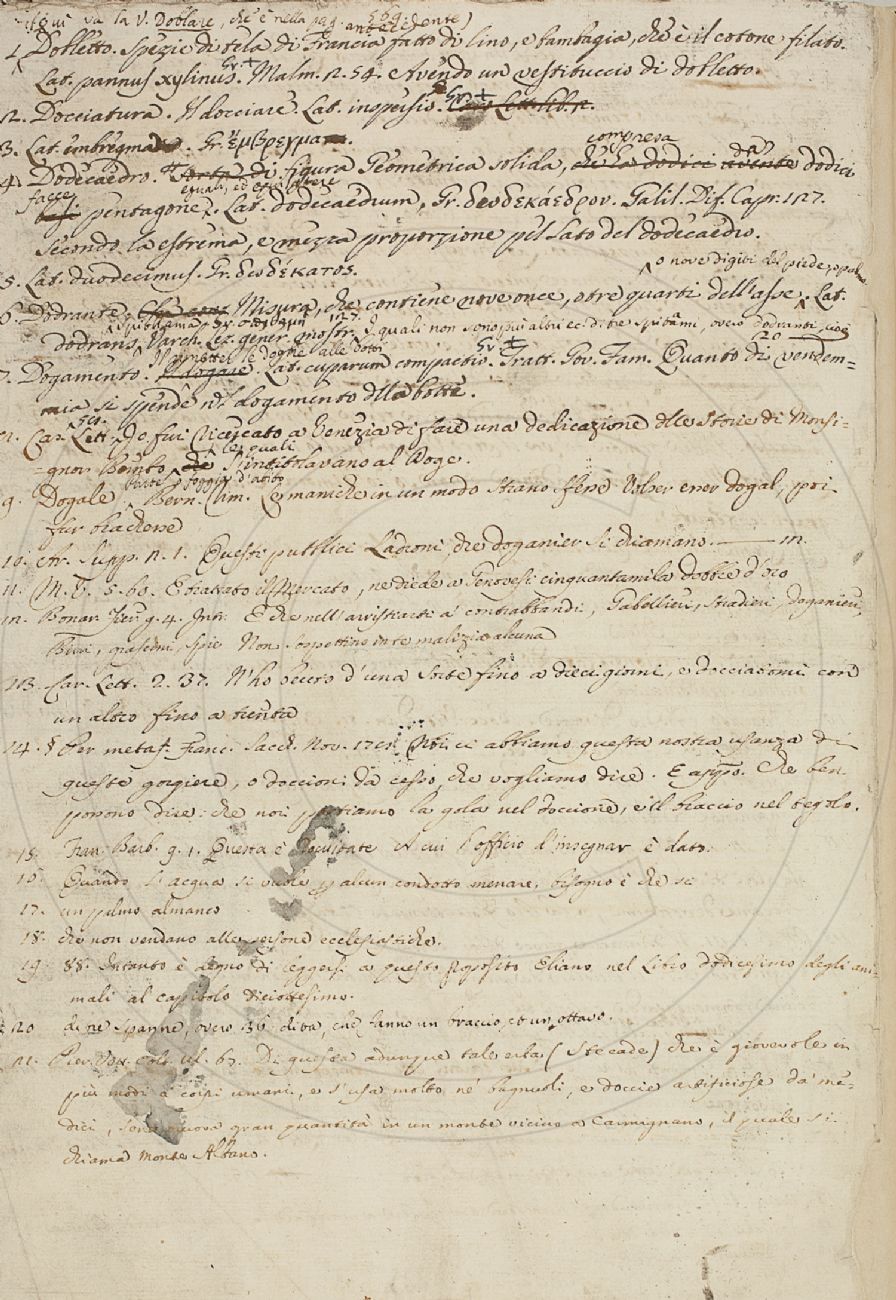 qui va la V. Doblare, che è nella pag. antecedente)
1. Dobletto. Spezie di tela di Francia fatto di lino, e bambagia, che è il cotone filato.
Lat. pannus xylinus. Gr. + Malm. 2. 54. Avendo un vestituccio di dobletto.
2. Docciatura. Il docciare. Lat. inspersio. Gr. +
3. Lat. embregma. Gr. ἔμβρεγμα.
compresa da
4. Dodecaedro. figura Geometrica solida, dodici
facce eguali, ed
pentagone. Lat. dodecaedrum, Gr. δεοδεκάεδρον. Galil. Dif. Capr. 127.
Secondo la estrema, e mezza proporzione pel lato del dodecaedro.
5. Lat. duodecimus. Gr. δεοδέκατος.
o nove digiti del piede, o palmo
6. Dodrante. Misura, che contiene nove once, o tre quarti dell'asse. Lat.
dodrans, Varch. Lez. gener. mostr. I quali non sono più alti ec. di tre spitami, overo dodranti, cioè
20
7. Dogamento. Il rimetter le doghe alle botti. Lat. cuparum compactio. Gr. + Tratt. Gov. Fam. Quanto di vendem=
mia si spende nel dogamento della botte.
Car. Lett. Io fui ricercato a Venezia di fare una dedicazione delle Storie di Monsi=
gnor Bembo le quali s'intitolavano al Doge.
9. Dogale. Bern. rim. Le maniche in un modo strano fesse Volser esser dogal, poi
fur
10. Ar. Supp. 2. 1. Questi pubblici Ladroni, che doganier si chiamano.
11. M. V. 5. 60. E trattato il Mercato, ne diede a Genovesi cinquantamila dobble d'oro
12. Bonar. Fier. g. 4. Intr. E che nell'arristiarsi a' contrabbandi, Gabellieri, Stradieri, doganieri,
Birri, grascini, spie Non sospettino in te malizia alcuna
13. Car. Lett. 2. 37. N'ho avuto d'una sorte fino a dieci giorni, e docciatomi con
un altro fino a trenta
14. § Per metaf. Franc. Sacch. Nov. Noi ci abbiamo questa nostra usanza di
queste gorgiere, o doccioni da cesso, che vogliamo dire. E appo. Che ben
possono dire: che noi portiamo la gola nel doccione, e il braccio nel tegolo.
15. Fran. Barb. g. 1. Questa è Docilitate A cui l'officio d'insegnar è dato.
16. Quando l'acqua si vuole p alcun condotto menare, bisogno è che si
17. un palmo almanco
18. che non vendano alle persone ecclesiastiche.
19. 88. Intanto è degno di leggersi a questo proposito Eliano nel Libro dodicesimo degli ani=
mali al capitolo diciottesimo.
20 di tre spanne, overo 36 dita, che fanno un braccio, et un ottavo.
21. Di questa adunque tale erba (Stecade) che è giovevole in
più modi a' corpi umani, e s'usa molto ne' bagnuoli, e doccie artificiose da' me=
dici, gran quantità in un monte vicino a Carmignano, il quale si
chiama Monte Albano.